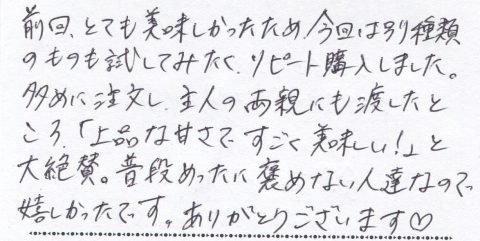 前回、とても美味しかったため、今回は別種類
のものも試してみたく、リピート購入しました。
多めに注文し、主人の両親にも渡したと
ころ、「上品な甘さで すごく美味しい!」と
大絶賛。普段めったに褒めない人達なので
嬉しかったです。ありがとうございます♡